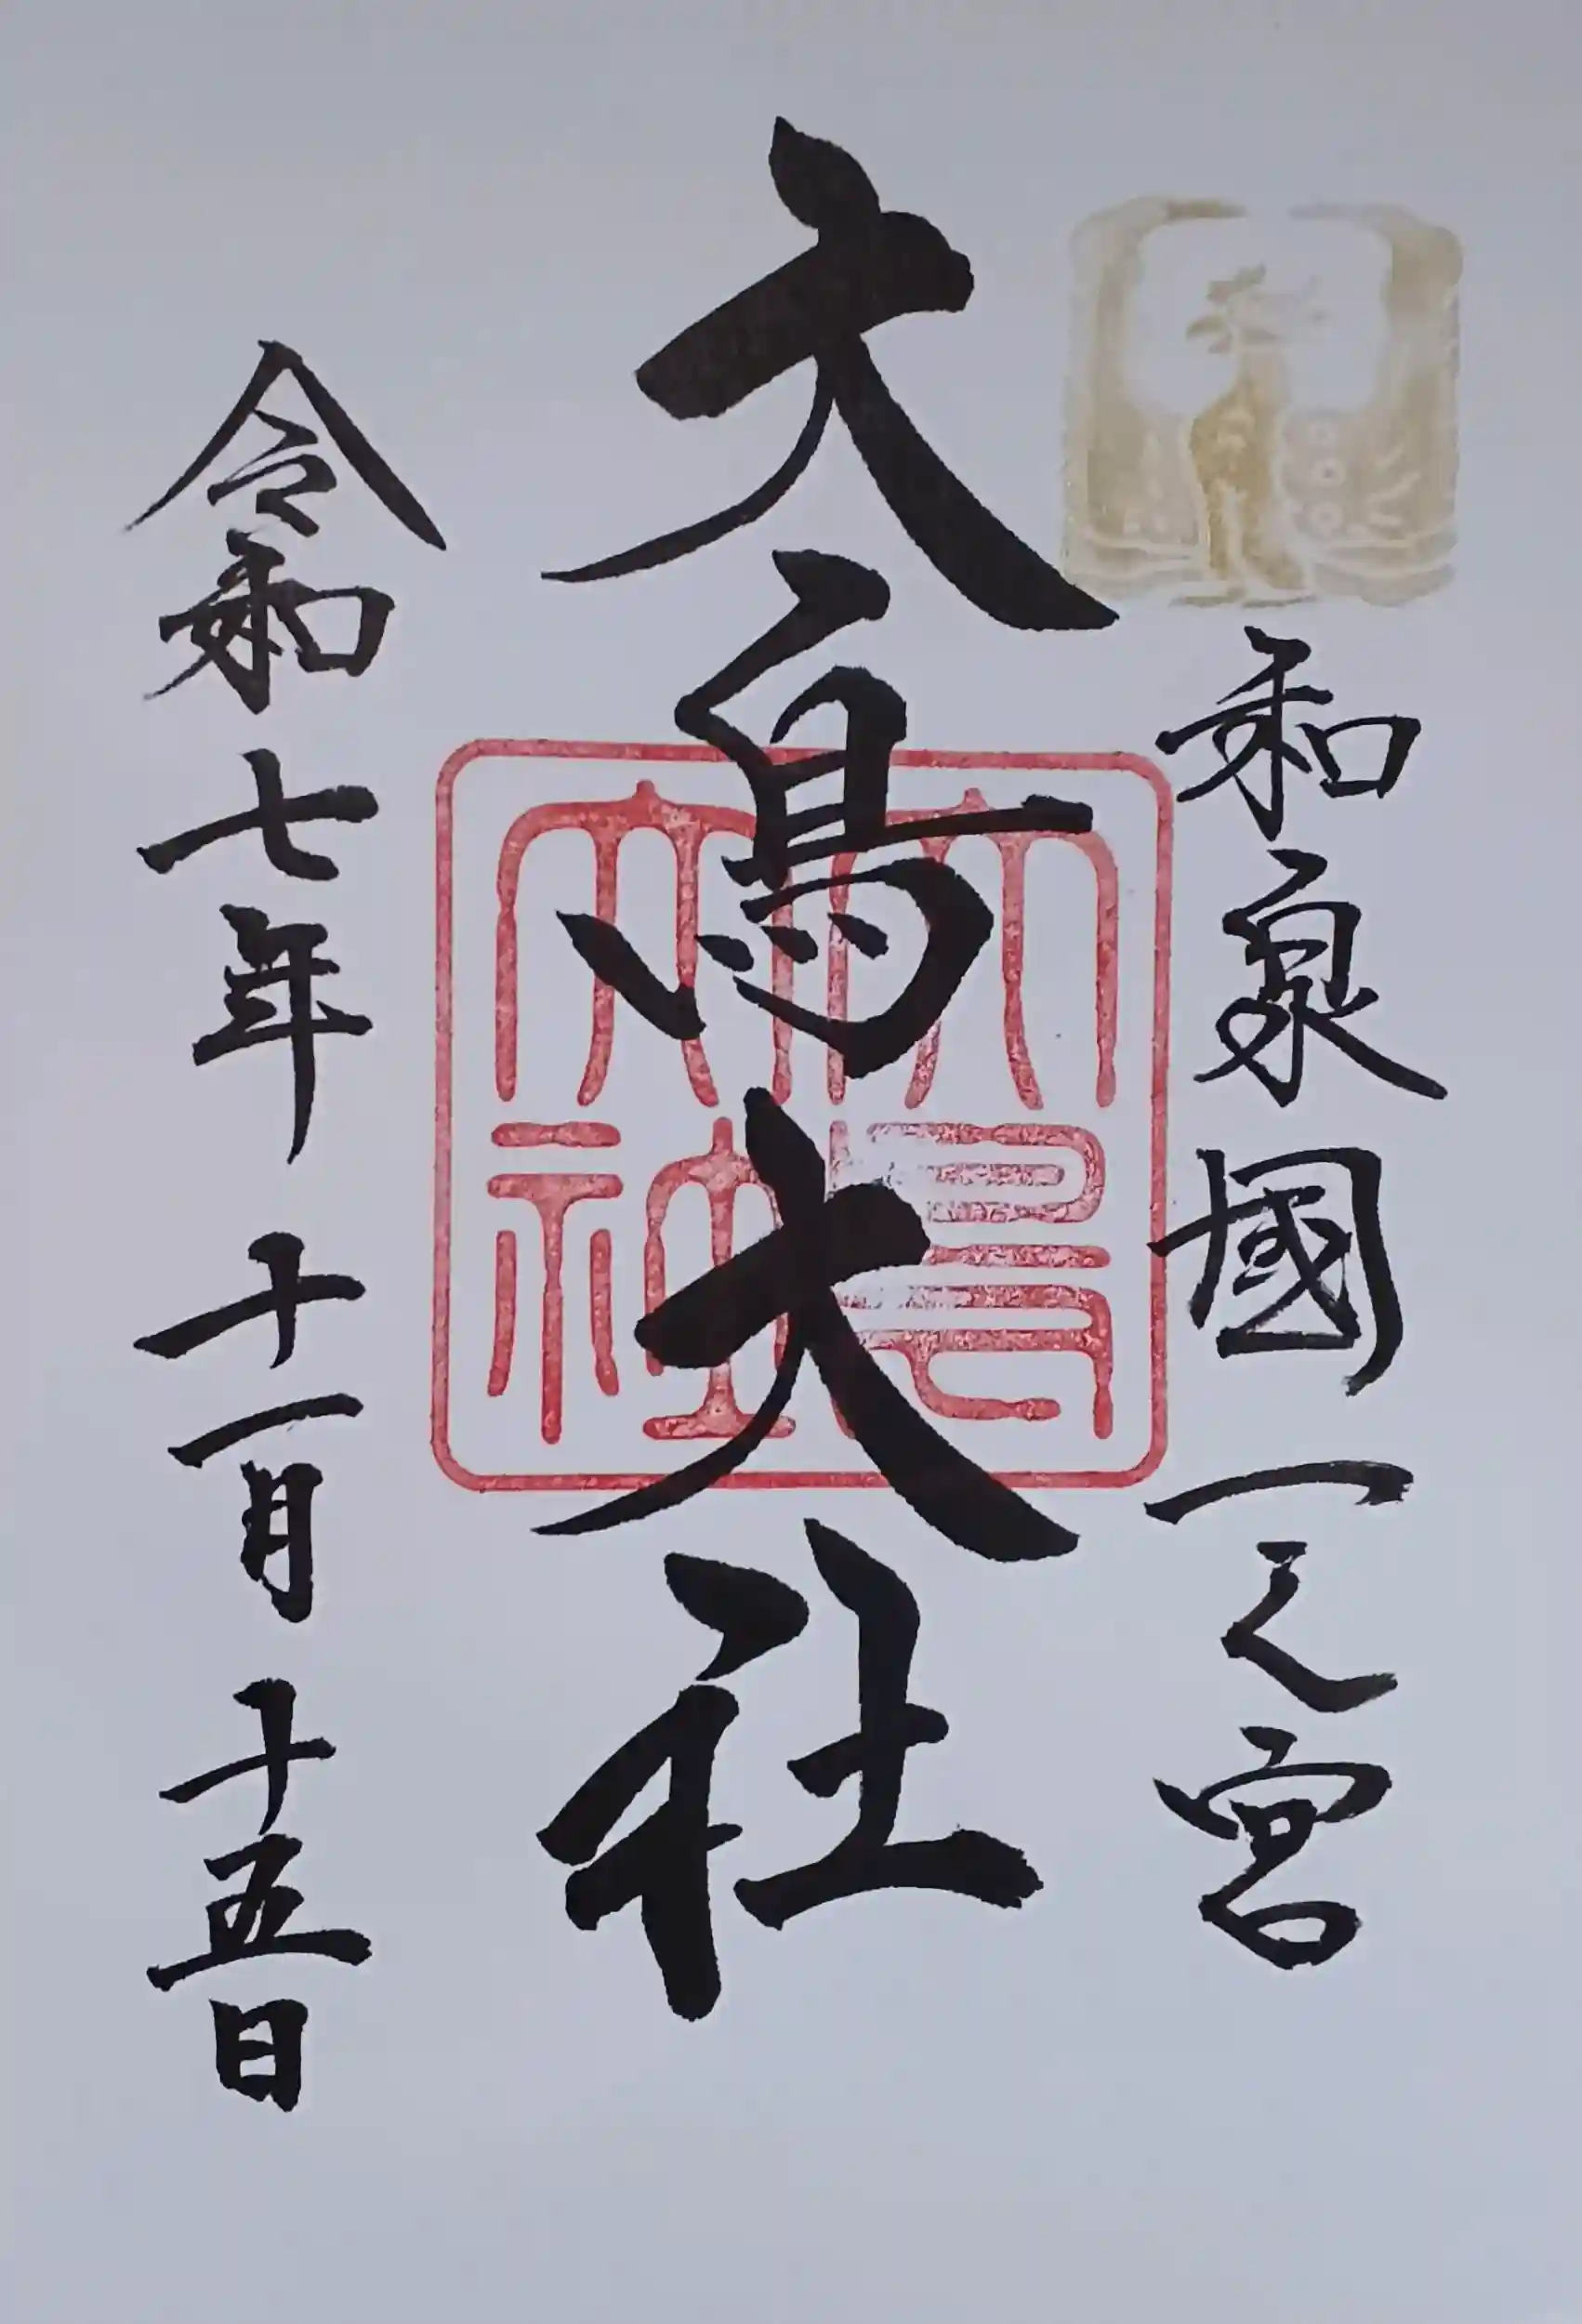 和泉國一之宮
大鳥大社
大鳥大社
令和七年十一月十五日